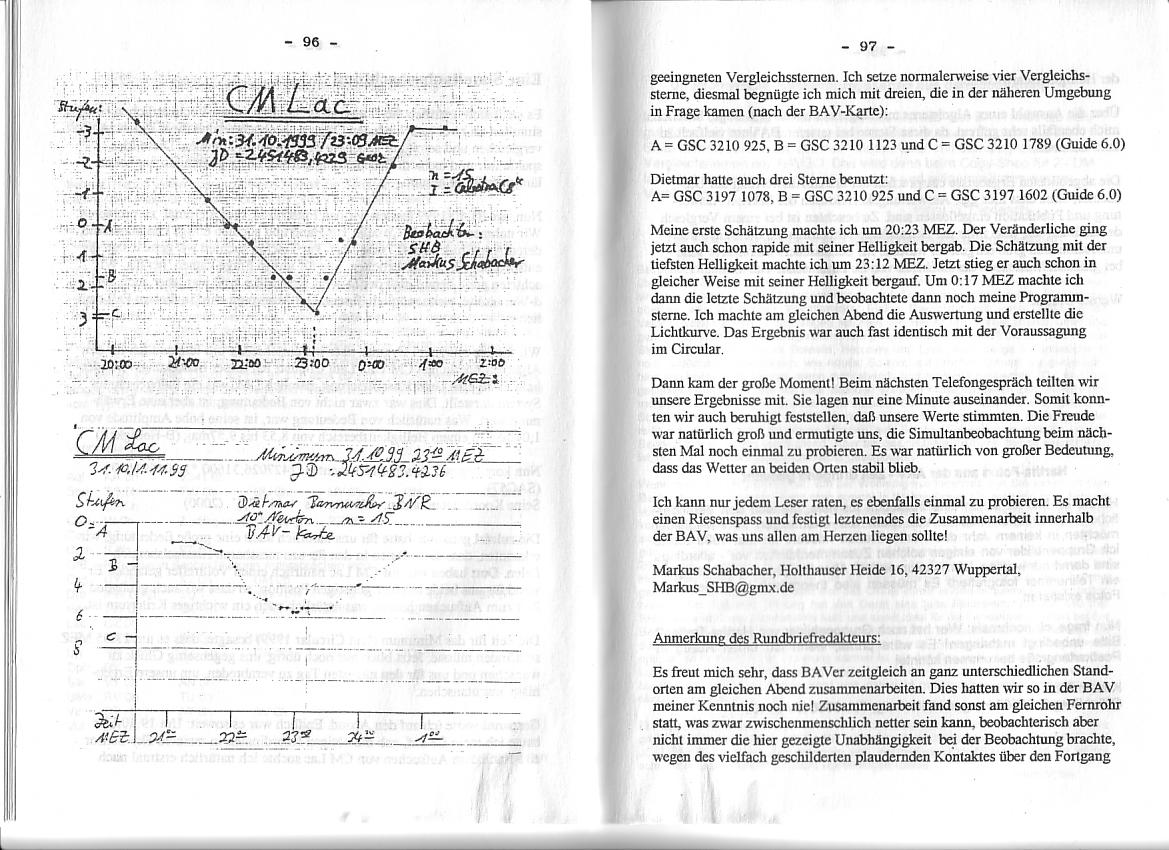 - 96 -
CM Lac
Stufen:
Min: 31.10.1999 / 23:09 MEZ
JD = 2451483,4229 geoz
n = 15
I = Celestron C8"
Beobachter:
SHB
Markus Schabacher
-3
-2
-1
0 A
1
B
2
3 C
20:00 21:00 22:00 23:00 0:00 1:00 2:00
MEZ:
CM Lac
Minimum 31.10.99 23 10 MEZ
31.10./1.11.99
JD: 2451483.4236
Stufen
Dietmar Bannuscher BNR
10" Newton n = 15
BAV-Karte
0 A
2
B
4
6
C
8
Zeit
MEZ 21 00 22 00 23 00 24 00 1 00
- 97 -
geeingneten Vergleichssternen. Ich setze normalerweise vier Vergleichs-
sterne, diesmal begnügte ich mich mit dreien, die in der näheren Umgebung
in Frage kamen (nach der BAV-Karte):
A = GSC 3210 925, B = GSC 3210 1123 und C = GSC 3210 1789 (Guide 6.0)
Dietmar hatte auch drei Sterne benutzt:
A= GSC 3197 1078, B = GSC 3210 925 und C = GSC 3197 1602 (Guide 6.0)
Meine erste Schätzung machte ich um 20:23 MEZ. Der Veränderliche ging
jetzt auch schon rapide mit seiner Helligkeit bergab. Die Schätzung mit der
tiefsten Helligkeit machte ich um 23:12 MEZ. Jetzt stieg er auch schon in
gleicher Weise mit seiner Helligkeit bergauf. Um 0:17 MEZ machte ich
dann die letzte Schätzung und beobachtete dann noch meine Programm-
sterne. Ich machte am gleichen Abend die Auswertung und erstellte die
Lichtkurve. Das Ergebnis war auch fast identisch mit der Voraussagung
im Circular.
Dann kam der große Moment! Beim nächsten Telefongespräch teilten wir
unsere Ergebnisse mit. Sie lagen nur eine Minute auseinander. Somit konn-
ten wir auch beruhigt feststellen, daß unsere Werte stimmten. Die Freude
war natürlich groß und ermutigte uns, die Simultanbeobachtung beim näch-
sten Mal noch einmal zu probieren. Es war natürlich von großer Bedeutung,
dass das Wetter an beiden Orten stabil blieb.
Ich kann nur jedem Leser raten, es ebenfalls einmal zu probieren. Es macht
einen Riesenspass und festigt leztenendes die Zusammenarbeit innerhalb
der BAV, was uns allen am Herzen liegen sollte!
Markus Schabacher, Holthauser Heide 16, 42327 Wuppertal,
Markus_SHB@gmx.de
Anmerkung des Rundbriefredakteurs:
Es freut mich sehr, dass BAVer zeitgleich an ganz unterschiedlichen Stand-
orten am gleichen Abend zusammenarbeiten. Dies hatten wir so in der BAV
meiner Kenntnis noch nie! Zusammenarbeit fand sonst am gleichen Fernrohr
statt, was zwar zwischenmenschlich netter sein kann, beobachterisch aber
nicht immer die hier gezeigte Unabhängigkeit bei der Beobachtung brachte,
wegen des vielfach geschilderten plaudernden Kontaktes über den Fortgang